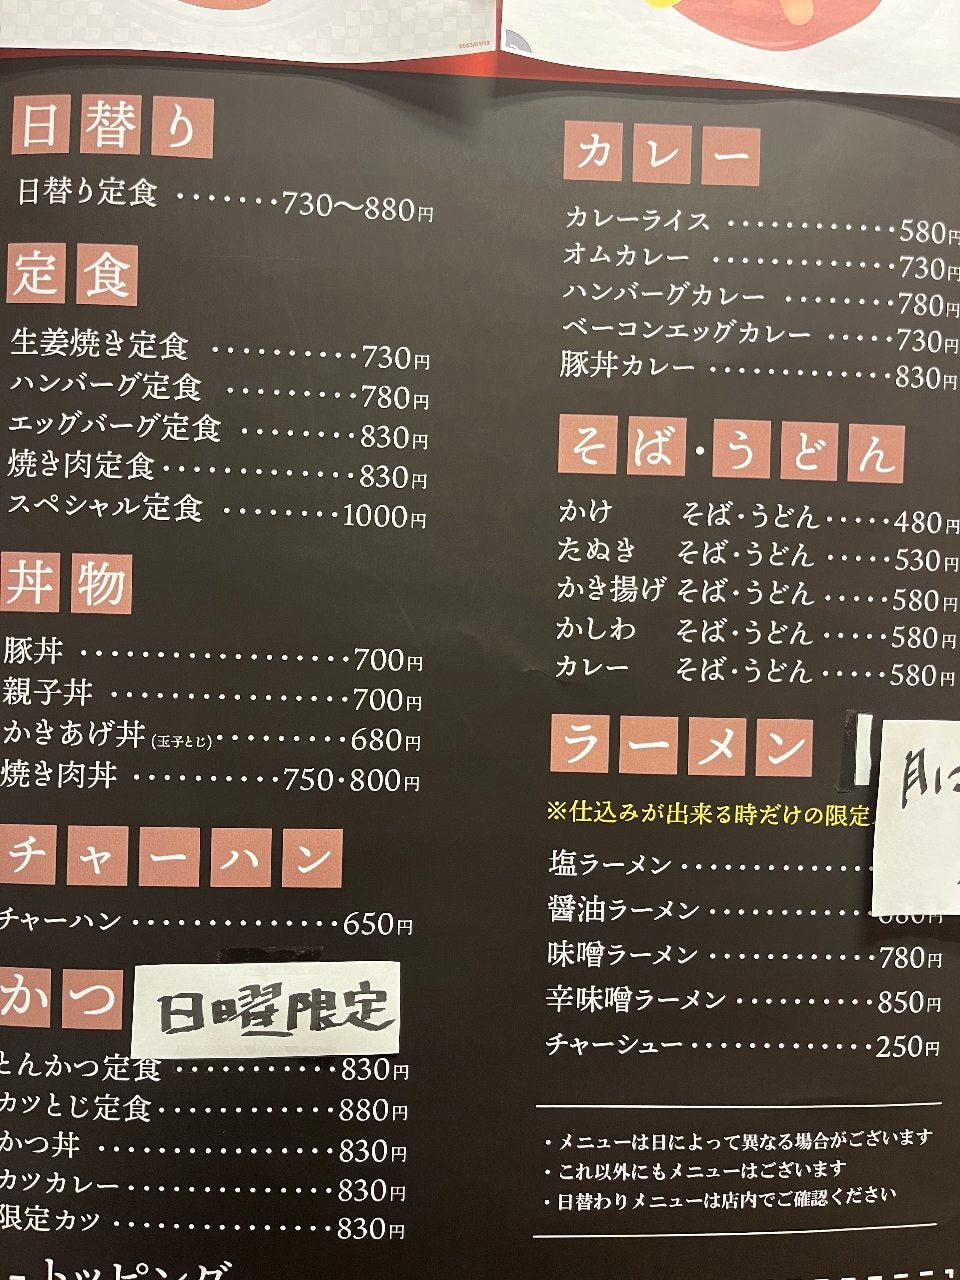 日替り
日替り定食 ・・・・・・・730～880円
定食
生姜焼き定食 ・・・・・・・・・・730円
ハンバーグ定食 ・・・・・・・・・780円
エッグバーグ定食 ・・・・・・・・830円
焼き肉定食・・・・・・・・・・・・・830円
スペシャル定食 ・・・・・・・・1000円
丼物
豚丼 ・・・・・・・・・・・・・・・・・・700円
親子丼 ・・・・・・・・・・・・・・・・700円
かきあげ丼(玉子とじ)・・・・・・・・・680円
焼き肉丼 ・・・・・・・・・・750・800円
チャーハン
チャーハン・・・・・・・・・・・・・・650円
かつ
日曜限定
とんかつ定食 ・・・・・・・・・・・830円
カツとじ定食・・・・・・・・・・・・880円
かつ丼 ・・・・・・・・・・・・・・・・830円
カツカレー・・・・・・・・・・・・・・830円
限定カツ ・・・・・・・・・・・・・・・830円
トッピング
カレー
カレーライス ・・・・・・・・・・・・580円
オムカレー ・・・・・・・・・・・・・730円
ハンバーグカレー ・・・・・・・・780円
ベーコンエッグカレー ・・・・・730円
豚丼カレー ・・・・・・・・・・・・・830円
そば・うどん
かけ そば・うどん・・・・・480円
たぬき そば・うどん ・・・・・530円
かき揚げ そば・うどん ・・・・・580円
かしわ そば・うどん ・・・・・580円
カレー そば・うどん ・・・・・580円
ラーメン
月は
※仕込みが出来る時だけの限定
塩ラーメン・・・・・・・・・・・・・
醤油ラーメン・・・・・・・・・・・円
味噌ラーメン・・・・・・・・・・・780円
辛味噌ラーメン・・・・・・・・・・850円
チャーシュー・・・・・・・・・・・・・250円
・メニューは日によって異なる場合がございます
・これ以外にもメニューはございます
・日替わりメニューは店内でご確認ください